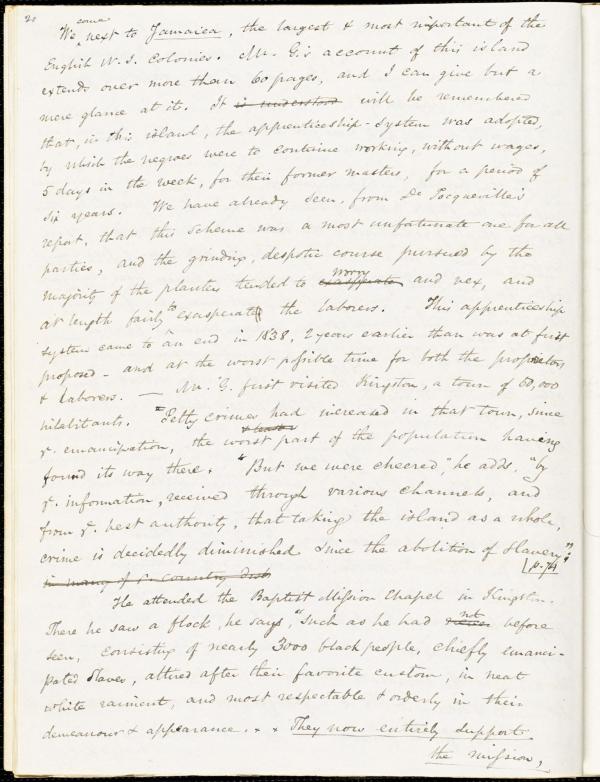 20
We come next to Jamaica, the largest & most important of the
English W. I. Colonies. Mr. G.'s account of this island
extends over more than 60 pages, and I can give but a
mere glance at it. It is understood will be remembered
that, in this island, the apprenticeship-system was adopted,
by which the negroes were to continue working, without wages,
5 days in the week, for their former masters, for a period of
six years. We have already seen, from De Tocqueville's
report, that this scheme was a most unfortunate one for all
parties, and the grinding, despotic course pursued by the
majority of the planters tended to exasperate worry and vex, and
at length fairly to exasperate the laborers. This apprenticeship
system came to an end in 1838, 2 years earlier than was at first
proposed - and at the worst possible time for both the proprietors
& laborers. — Mr. G. first visited Kingston, a town of 60,000
inhabitants. "Petty crimes had increased in that town, since
yᵉ. emancipation, the worst part of the population having
found its way there. "But we were cheered", he adds, "by
yᵉ. information, received through various channels, and
from yᵉ. best authority, that taking the island as a whole,
crime is decidedly diminished since the abolition of Slavery";
in many of yᵉ country dist p. 74
He attended the Baptist Mission Chapel in Kingston.
There he saw a flock, he says, "such as he had never not before
seen, consisting of nearly 3000 black people, chiefly emanci-
pated Slaves, attired after their favorite custom, in neat
white raiment, and most respectable & orderly in their
demeanour & appearance. * * They now entirely support
the mission,